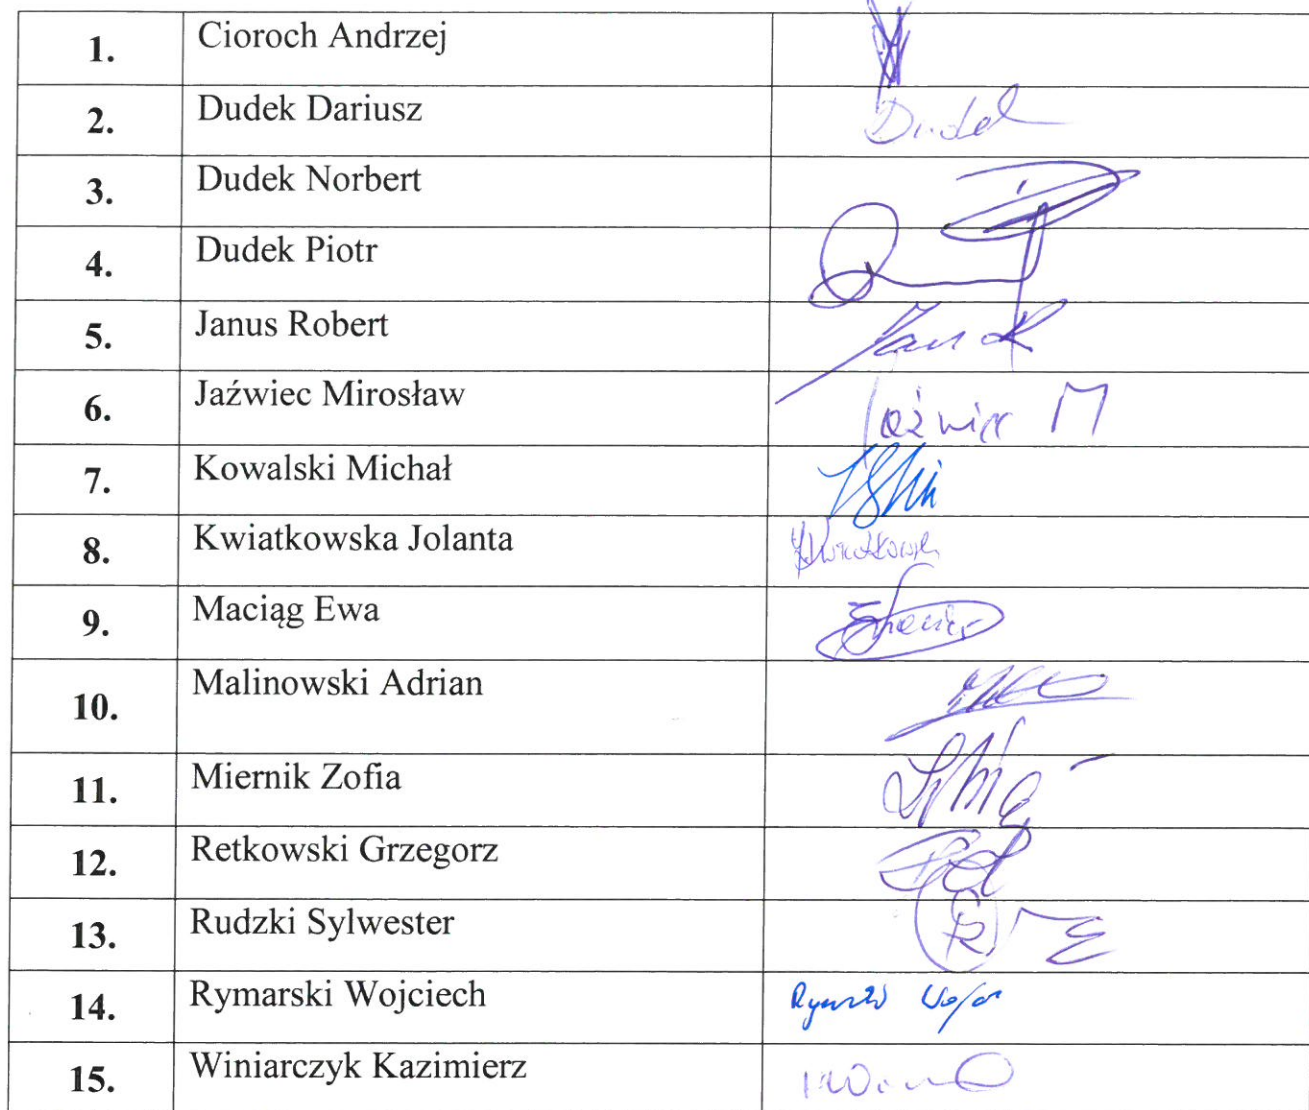 1. Cioroch Andrzej
2. Dudek Dariusz Dudek
3. Dudek Norbert
4. Dudek Piotr
5. Janus Robert
6. Jaźwiec Mirosław Jaźwiec M
7. Kowalski Michał
8. Kwiatkowska Jolanta
9. Maciąg Ewa
10. Malinowski Adrian
11. Miernik Zofia
12. Retkowski Grzegorz
13. Rudzki Sylwester
14. Rymarski Wojciech
15. Winiarczyk Kazimierz